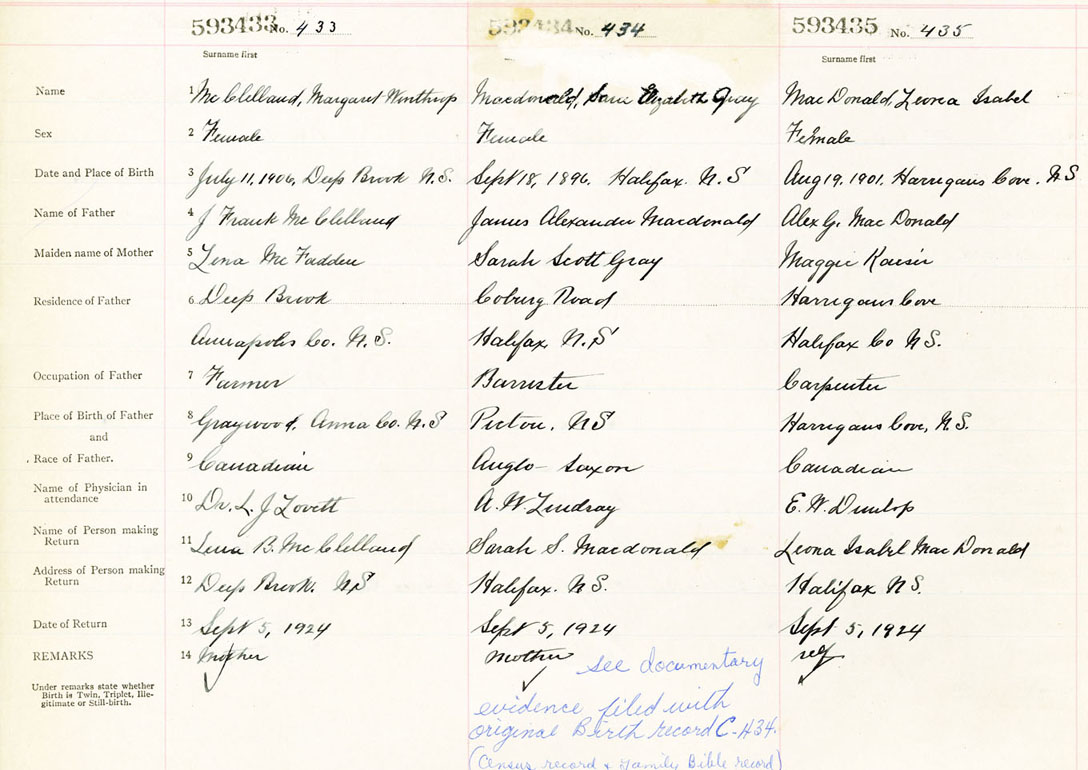 593433 No. 433 593434 No. 434 593435 No. 435
Surname first Surname first
Name 1 McClelland, Margaret Winthrop Macdonald, Elizabeth Gray MacDonald, Leona Isabel
Sex 2 Female Female Female
Date and Place of Birth 3 July 11, 1906, Deep Brook N.S. Sept 18, 1896. Halifax. N.S Aug 19, 1901. Harrigans Cove. N.S
Name of Father 4 J Frank McClelland James Alexander Macdonald Alex G. MacDonald
Maiden name of Mother 5 Lena McFadden Sarah Scott Gray Maggie
Residence of Father 6 Deep Brook Coburg Road Harrigans Cove
Annapolis Co. N.S. Halifax N.S Halifax Co N.S.
Occupation of Father 7 Farmer Barrister Carpenter
Place of Birth of Father 8 Graywood, Anna Co. N.S Pictou, NS Harrigans Cove, N.S.
and
Race of Father. 9 Canadian Anglo-Saxon Canadian
Name of Physician in
attendance 10 Dr. L. J Lovett A. W Lindsay E. W. Dunlop
Name of Person making
Return 11 Lena B. McClelland Sarah S. Macdonald Leona Isabel MacDonald
Address of Person making
Return 12 Deep Brook. N.S Halifax. N S. Halifax N S.
Date of Return 13 Sept 5, 1924 Sept 5, 1924 Sept 5, 1924
REMARKS 14 Mother mother see documentary
Under remarks state whether
Birth is Twin, Triplet, Ille-
gitimate or Still-birth.
evidence filed with
original Birth record C-434.
(Census record & Family Bible record)